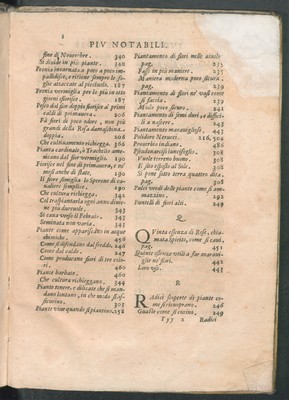 PIV NOTABILI.
fine di Nouembre. 340
Si diuide in più piante. 340
Peonia incarnata a poco a poco im-
pallidisce, e ritiene sempre le fo-
glie attaccate al picciuolo. 187
Peonia vermiglia per lo più in otto
giorni sfiorisce. 187
Pesco dal fior doppio fiorisce al primi
caldi di primauera. 206
Fà fiori di poco odore, non più
grandi della Rosa damaschina.
doppia. 206
Che cultiuamento richiegga. 366
Pianta cardinale, ò Trachelio ame-
ricano dal fior vermiglio. 190
Fiorisce nel fine di primauera, e ne'
mesi anche di state. 190
Il fiore somiglia lo Sperone di ca-
ualiere semplice. 190
Che cultura richiegga. 342
Col traspiantarla ogni anno diuie-
ne più durenole. 343
Si caua verso il Febraio. 343
Seminata non varia. 345
Piante come apparischino in acque
chimiche. 458
Come si difendano dal freddo. 246
Come dal caldo. 247
Come producano fiori di tre colo-
ri. 460
Piante barbate. 460
Che cultura richieggano. 344
Piante tenere, e dilicate che si man-
dano lontano, in che modo si as-
sicurino. 303
Piante viue quando si piantino. 258
Piantamento di fiori nelle aiuole
pag. 235
Fassi in più maniere. 235
Maniera moderna poco sicura.
pag. 239
Piantamento di fiori ne' vasi come
si faccia. 239
Mole poco sicuro. 241
Piantamento di semi duri, e diffici-
li a nascere. 243
Piantamento marauiglioso. 443
Polidoro Nerucci. 116. 504
Prouerbio indiano. 486
Pseudonarcisi iuncifoglio. 308
Vuole terreno buono. 308
E sito esposto al Sole. 308
Si pone sotto terra quattro dita.
pag. 306
Pulci verdi delle piante come si am-
mazzino. 292
Puntelli di fiori alti. 249
Q
QVinta essenza di Rose, chia-
mata spiriti, come si caui.
pag. 451
Quinte essenze vtili a far maraui-
glie ne' fiori. 442
Loro vso. 443
R
RAdici scoperte di piante co-
me si ricuoprano. 246
Guaste come si curino. 249
Tyy 2 Radici